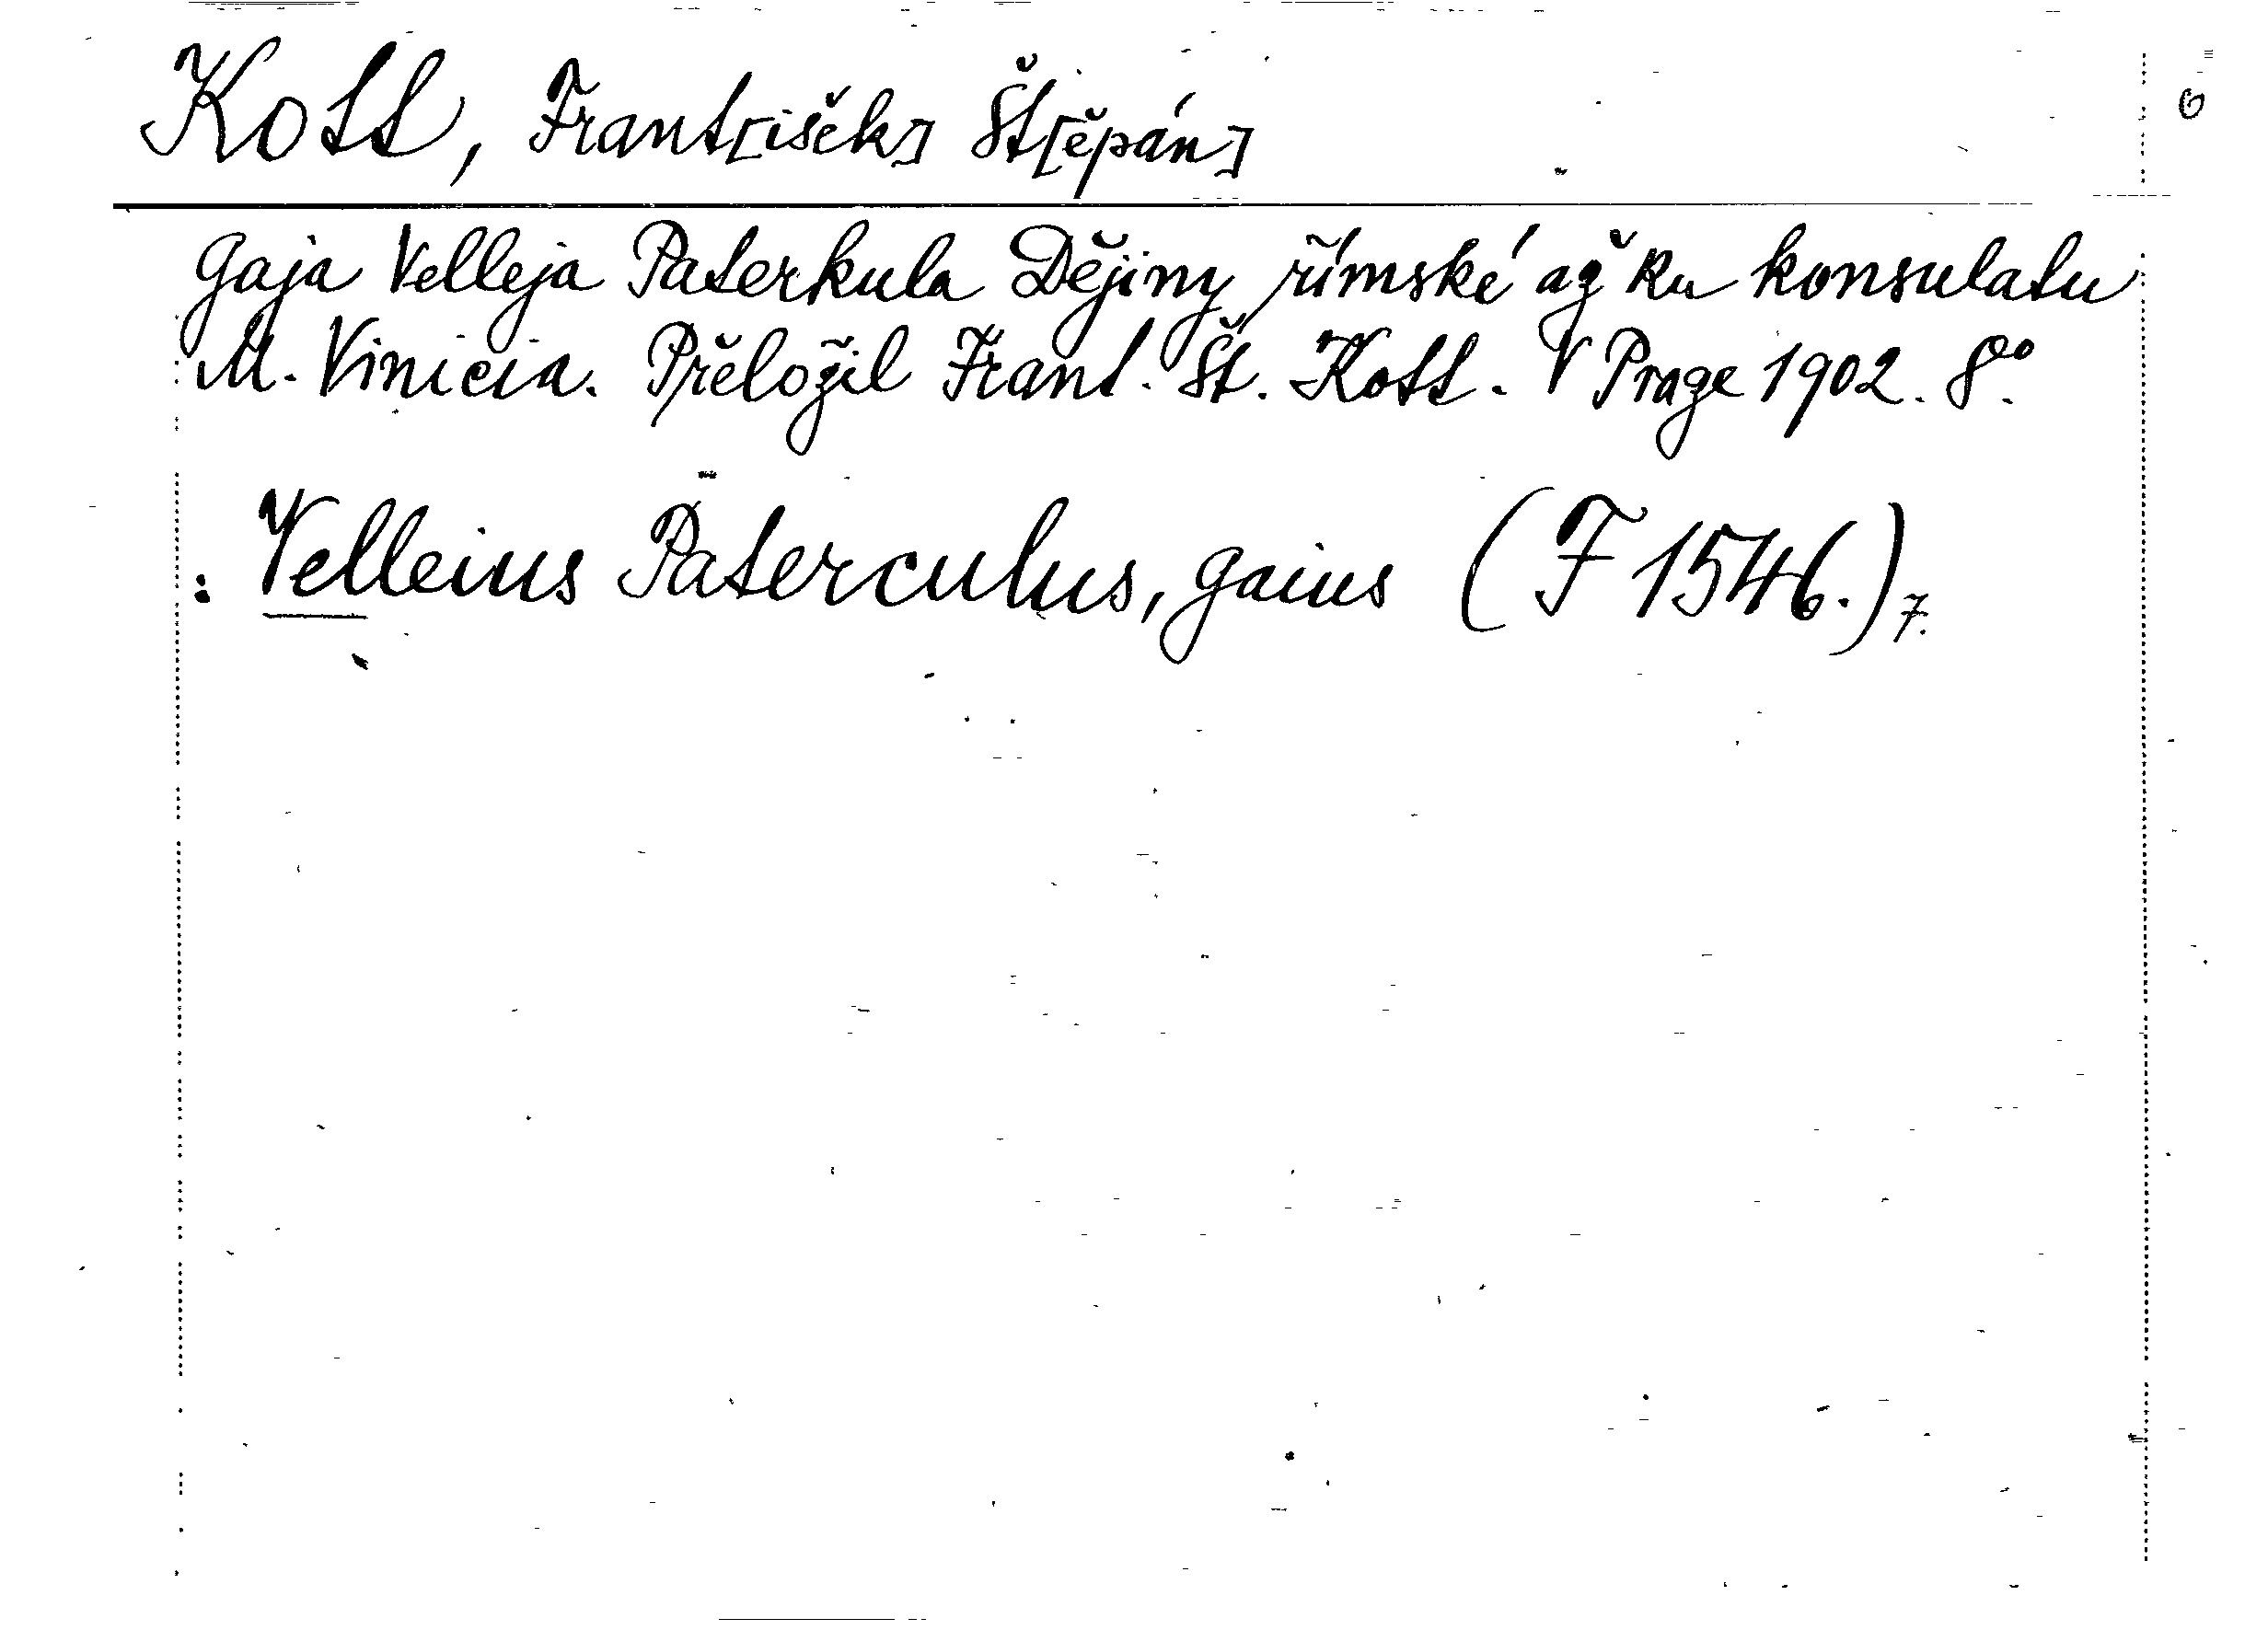 Kott, Frant[išek] Št[ěpán]
6
Gaja Velleja Paterkula Dějiny římské až ku konsulatu
M. Vinicia. Přeložil Frant. Št. Kott. V Praze 1902. 8°.
: Velleius Paterculus, Gaius (F 1546.) 7.